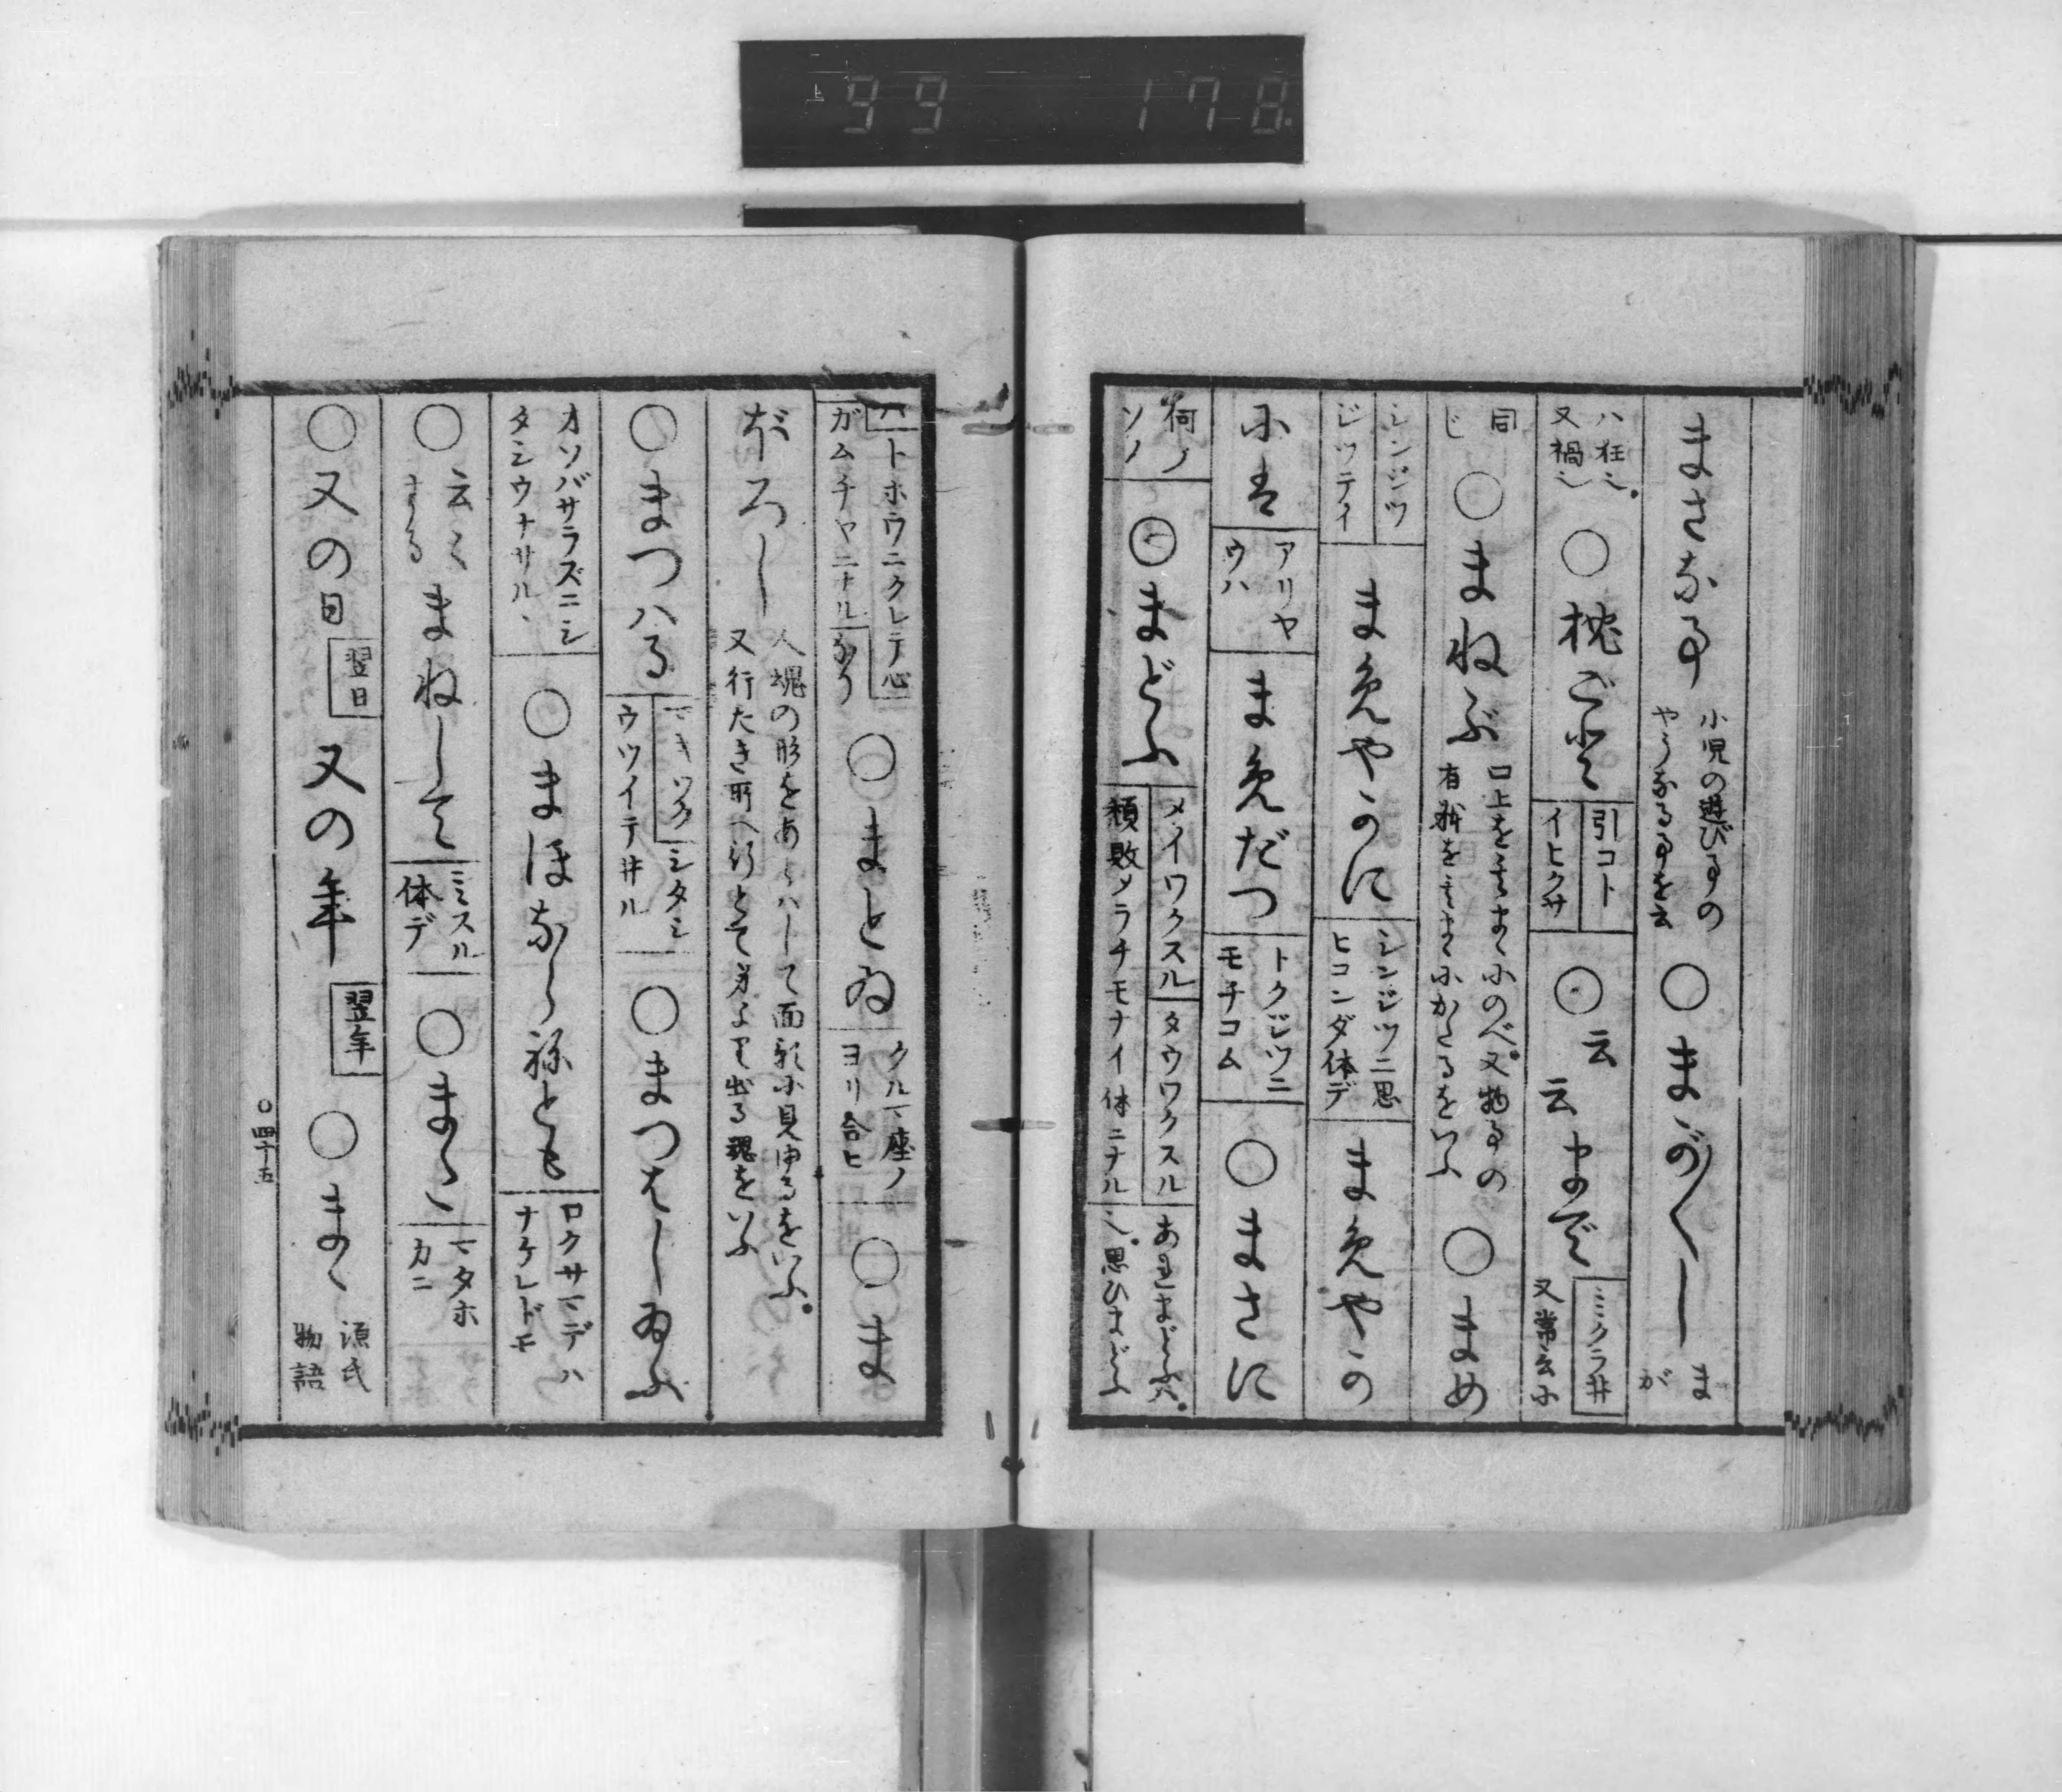 99 178
まさなき
小児の遊び事の
やうなる事を云
○まが〳〵し
ま
が
ハ狂也。
又禍也
○枕ごと
引コト
イヒクサ
○云
云まで
ミクラヰ
又常云
同
じ
○まねぶ
口上を
のべ。又物事の
有
をいふ
○まめ
シンジツ
ジツテイ
まめやかに
シンジツニ思
ヒコンダ体デ
まめやか
アリヤ
ウハ
まめだつ
トクジツニ
モチコム
○まさに
何ノ
ソノ
○まどふ
メイワクスル
タウワクスル
頽敗シラチモナイ体ニナル
あわてまどふ
也。思ひまどふ
ハトホウニクレテ心
ガムチヤニナル
なり
○まとゐ
クルマ座ノ
ヨリ合ヒ
○ま
ぼろし
人塊の形をあらハして面影に見ゆるをいふ。
又行たき所へ行とて身より出る魂をいふ
○まつハる
マキツク
シタシ
ウツイテ井ル
○まつはしゐふ
オソバサラズニシ
タシウナサル、
○まほならねとも
ロクサマデハ
ナケレドモ
○云々
する
まねして
ミスル
体デ
○また
マタホ
カニ
○又の日
翌日
又の年
翌年
○まく
源氏
物語
○四十五